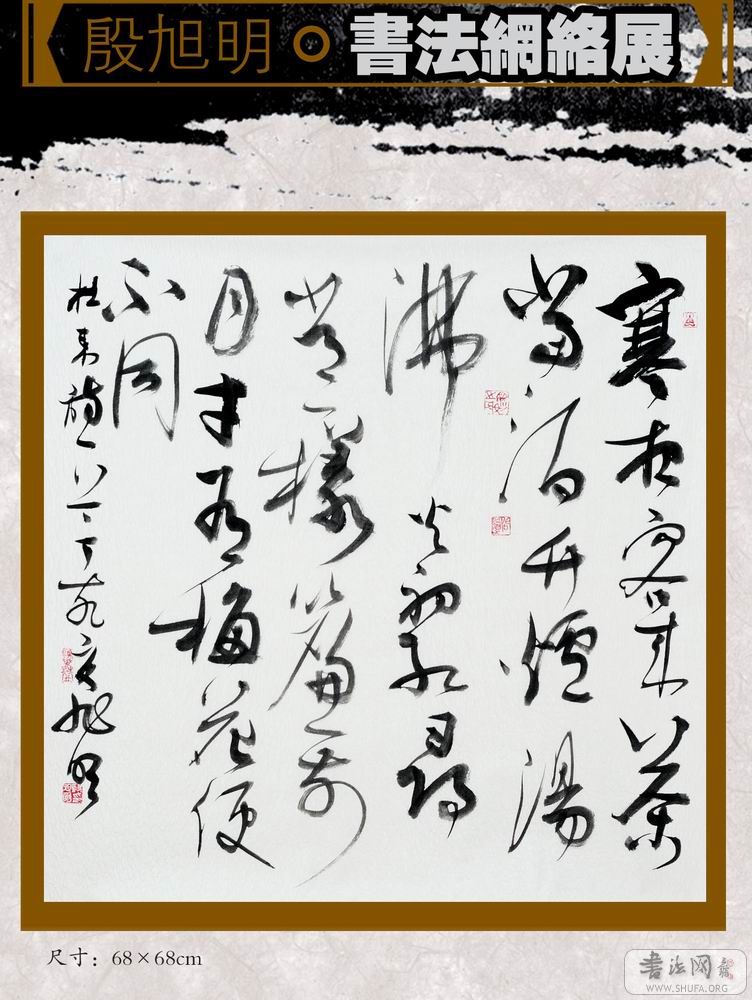 殷旭明 書法網絡展
寒夜客來茶
當酒竹爐湯
沸火初紅尋
常一樣窗前
月才有梅花便
不同
杜耒詩一首 殷旭明
尺寸：68×68cm
書法网
WWW.SHUFA.ORG